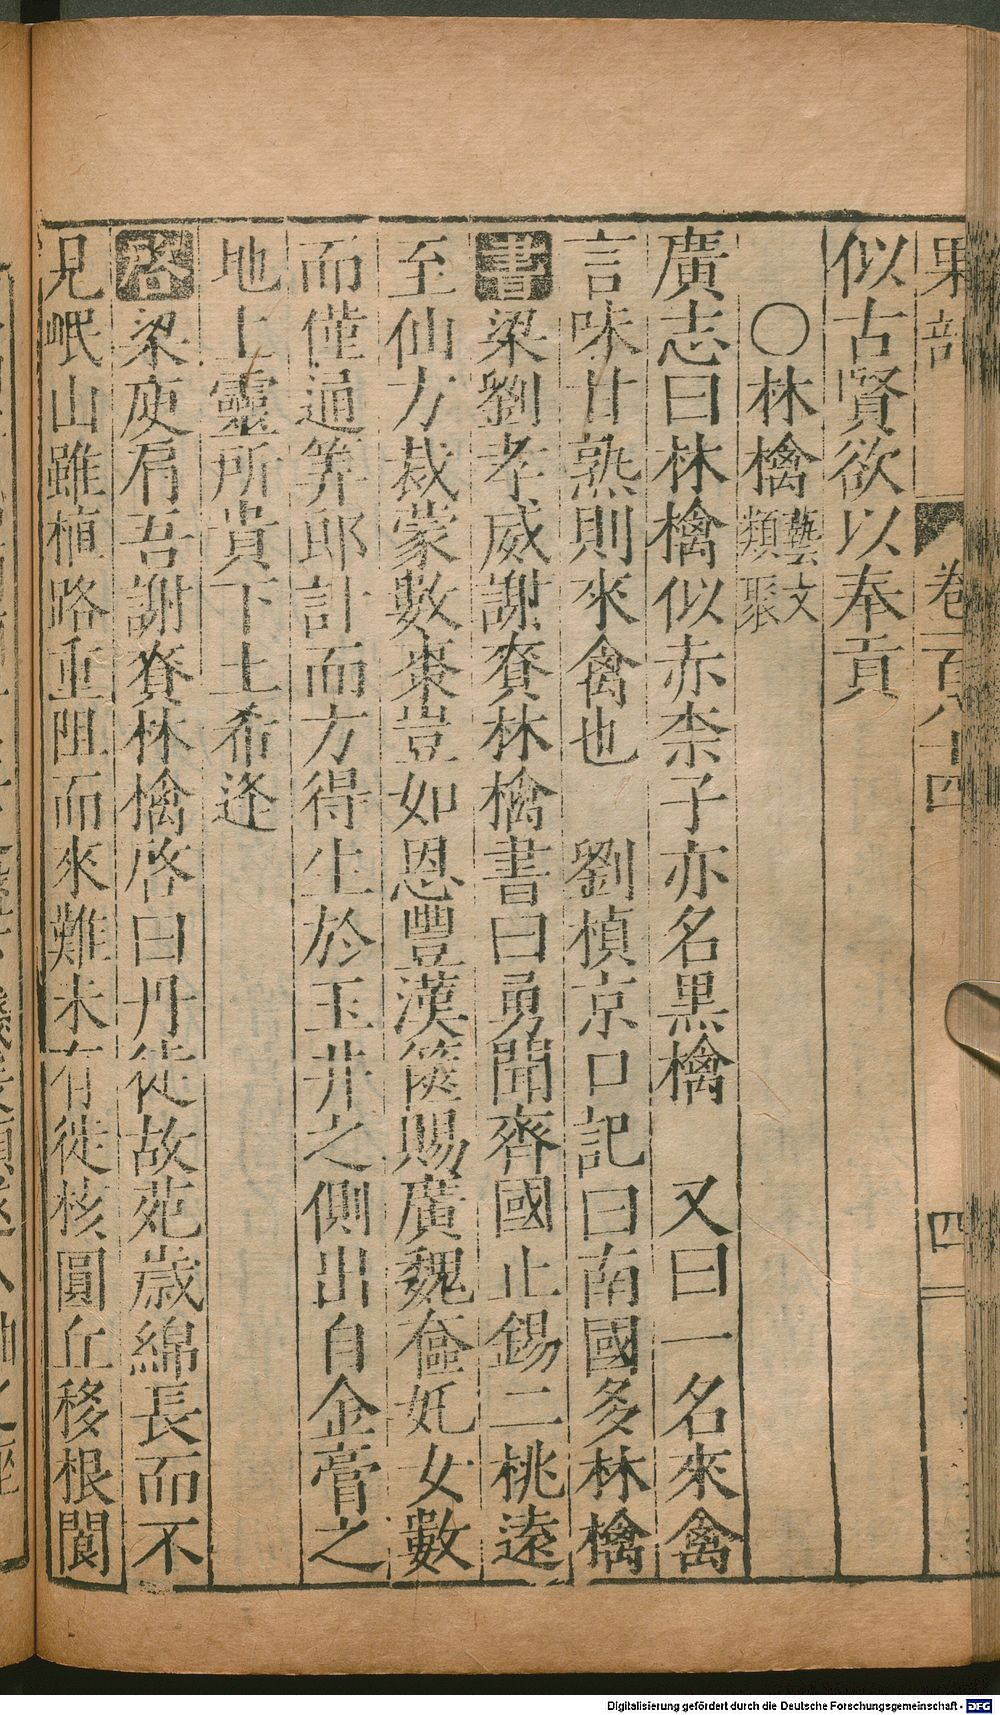 果部 卷一百八十四 四
似古賢欲以奉貢
○林檎 藝文類聚
廣志曰林檎似赤柰子亦名黑檎 又曰一名來禽
言味甘熟則來禽也 劉楨京口記曰南國多林檎
書梁劉孝威謝賚林檎書曰勇聞齊國止錫二桃遠
至仙方裁蒙數棗豈如恩豐漢篋賜廣魏奩 女數
而僅通筭郎計而方得生於玉井之側出自金膏之
地上靈所貴下土希逢
啓梁庾肩吾謝賚林檎啓曰丹徒故苑歲綿長而不
見岷山雖植路重阻而來難未有徙核圓丘移根閬
Digitalisierung gefördert durch die Deutsche Forschungsgemeinschaft - DFG